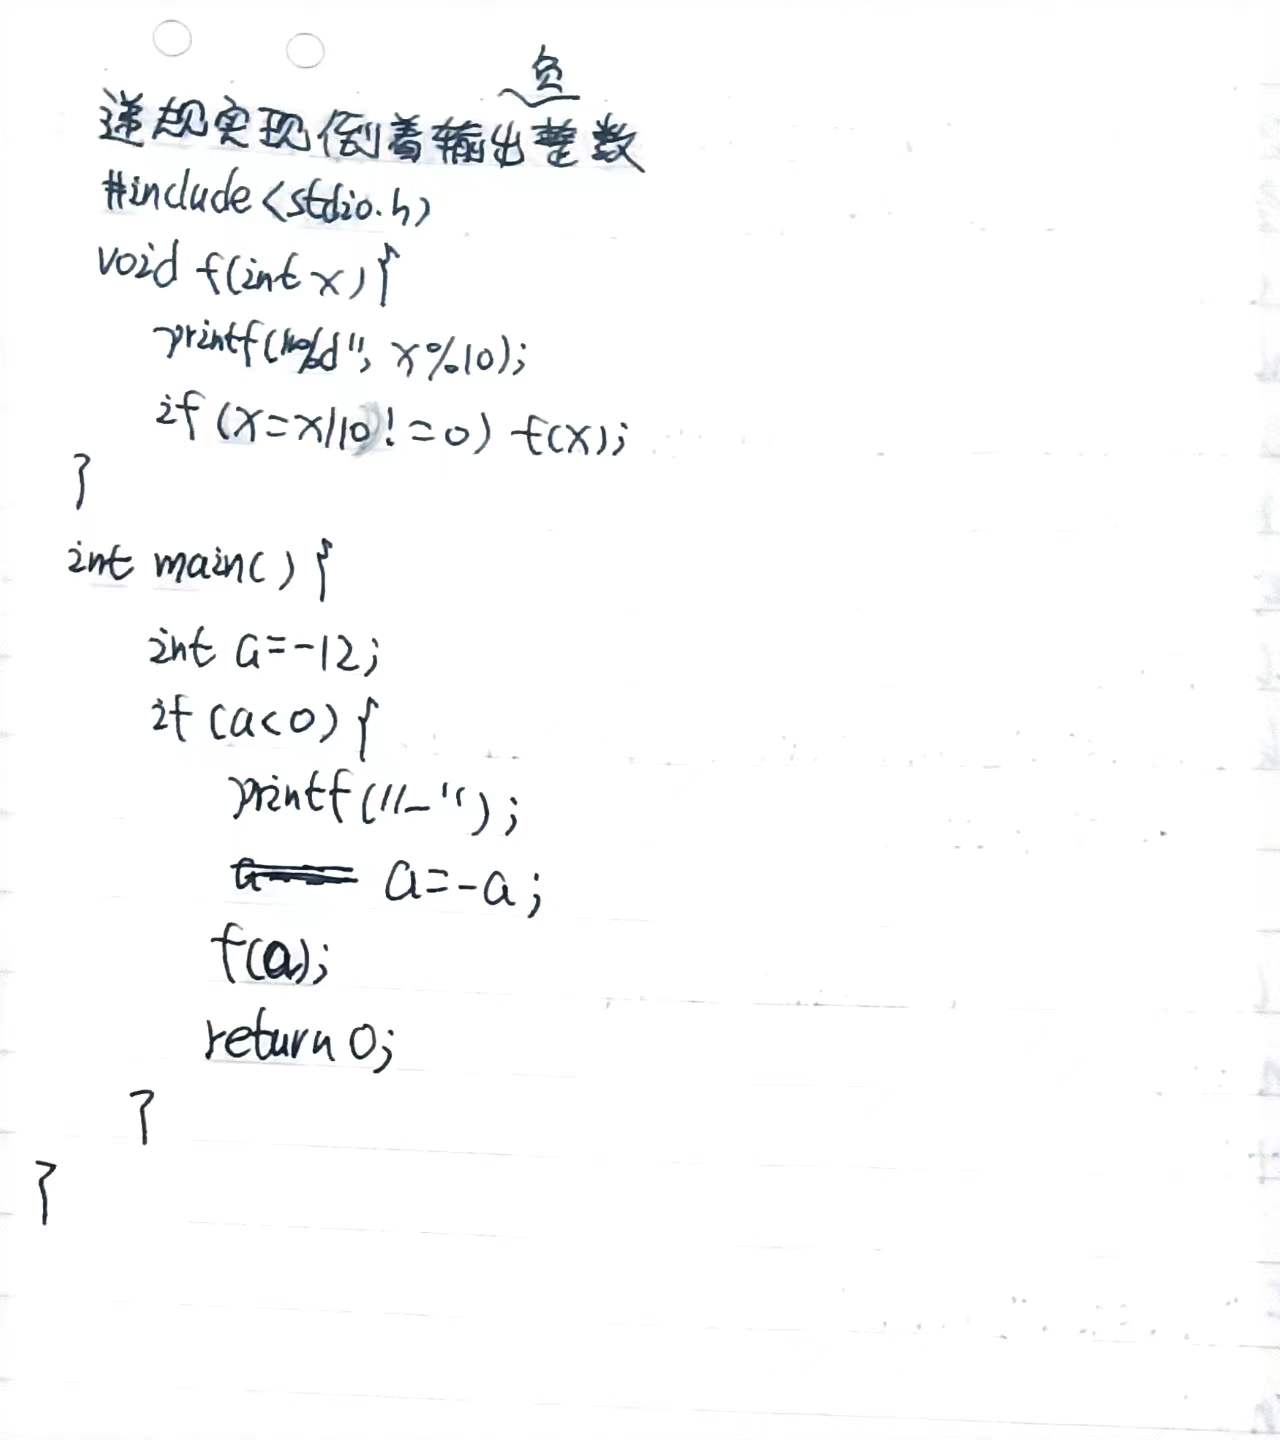 负
递规实现倒着输出整数
#include<stdio.h>
void f(int x){
printf("%d", x%10);
if (x=x/10!=0) f(x);
}
int main() {
int a=-12;
if (a<0) {
printf("-");
a=-a;
f(a);
return 0;
}
}